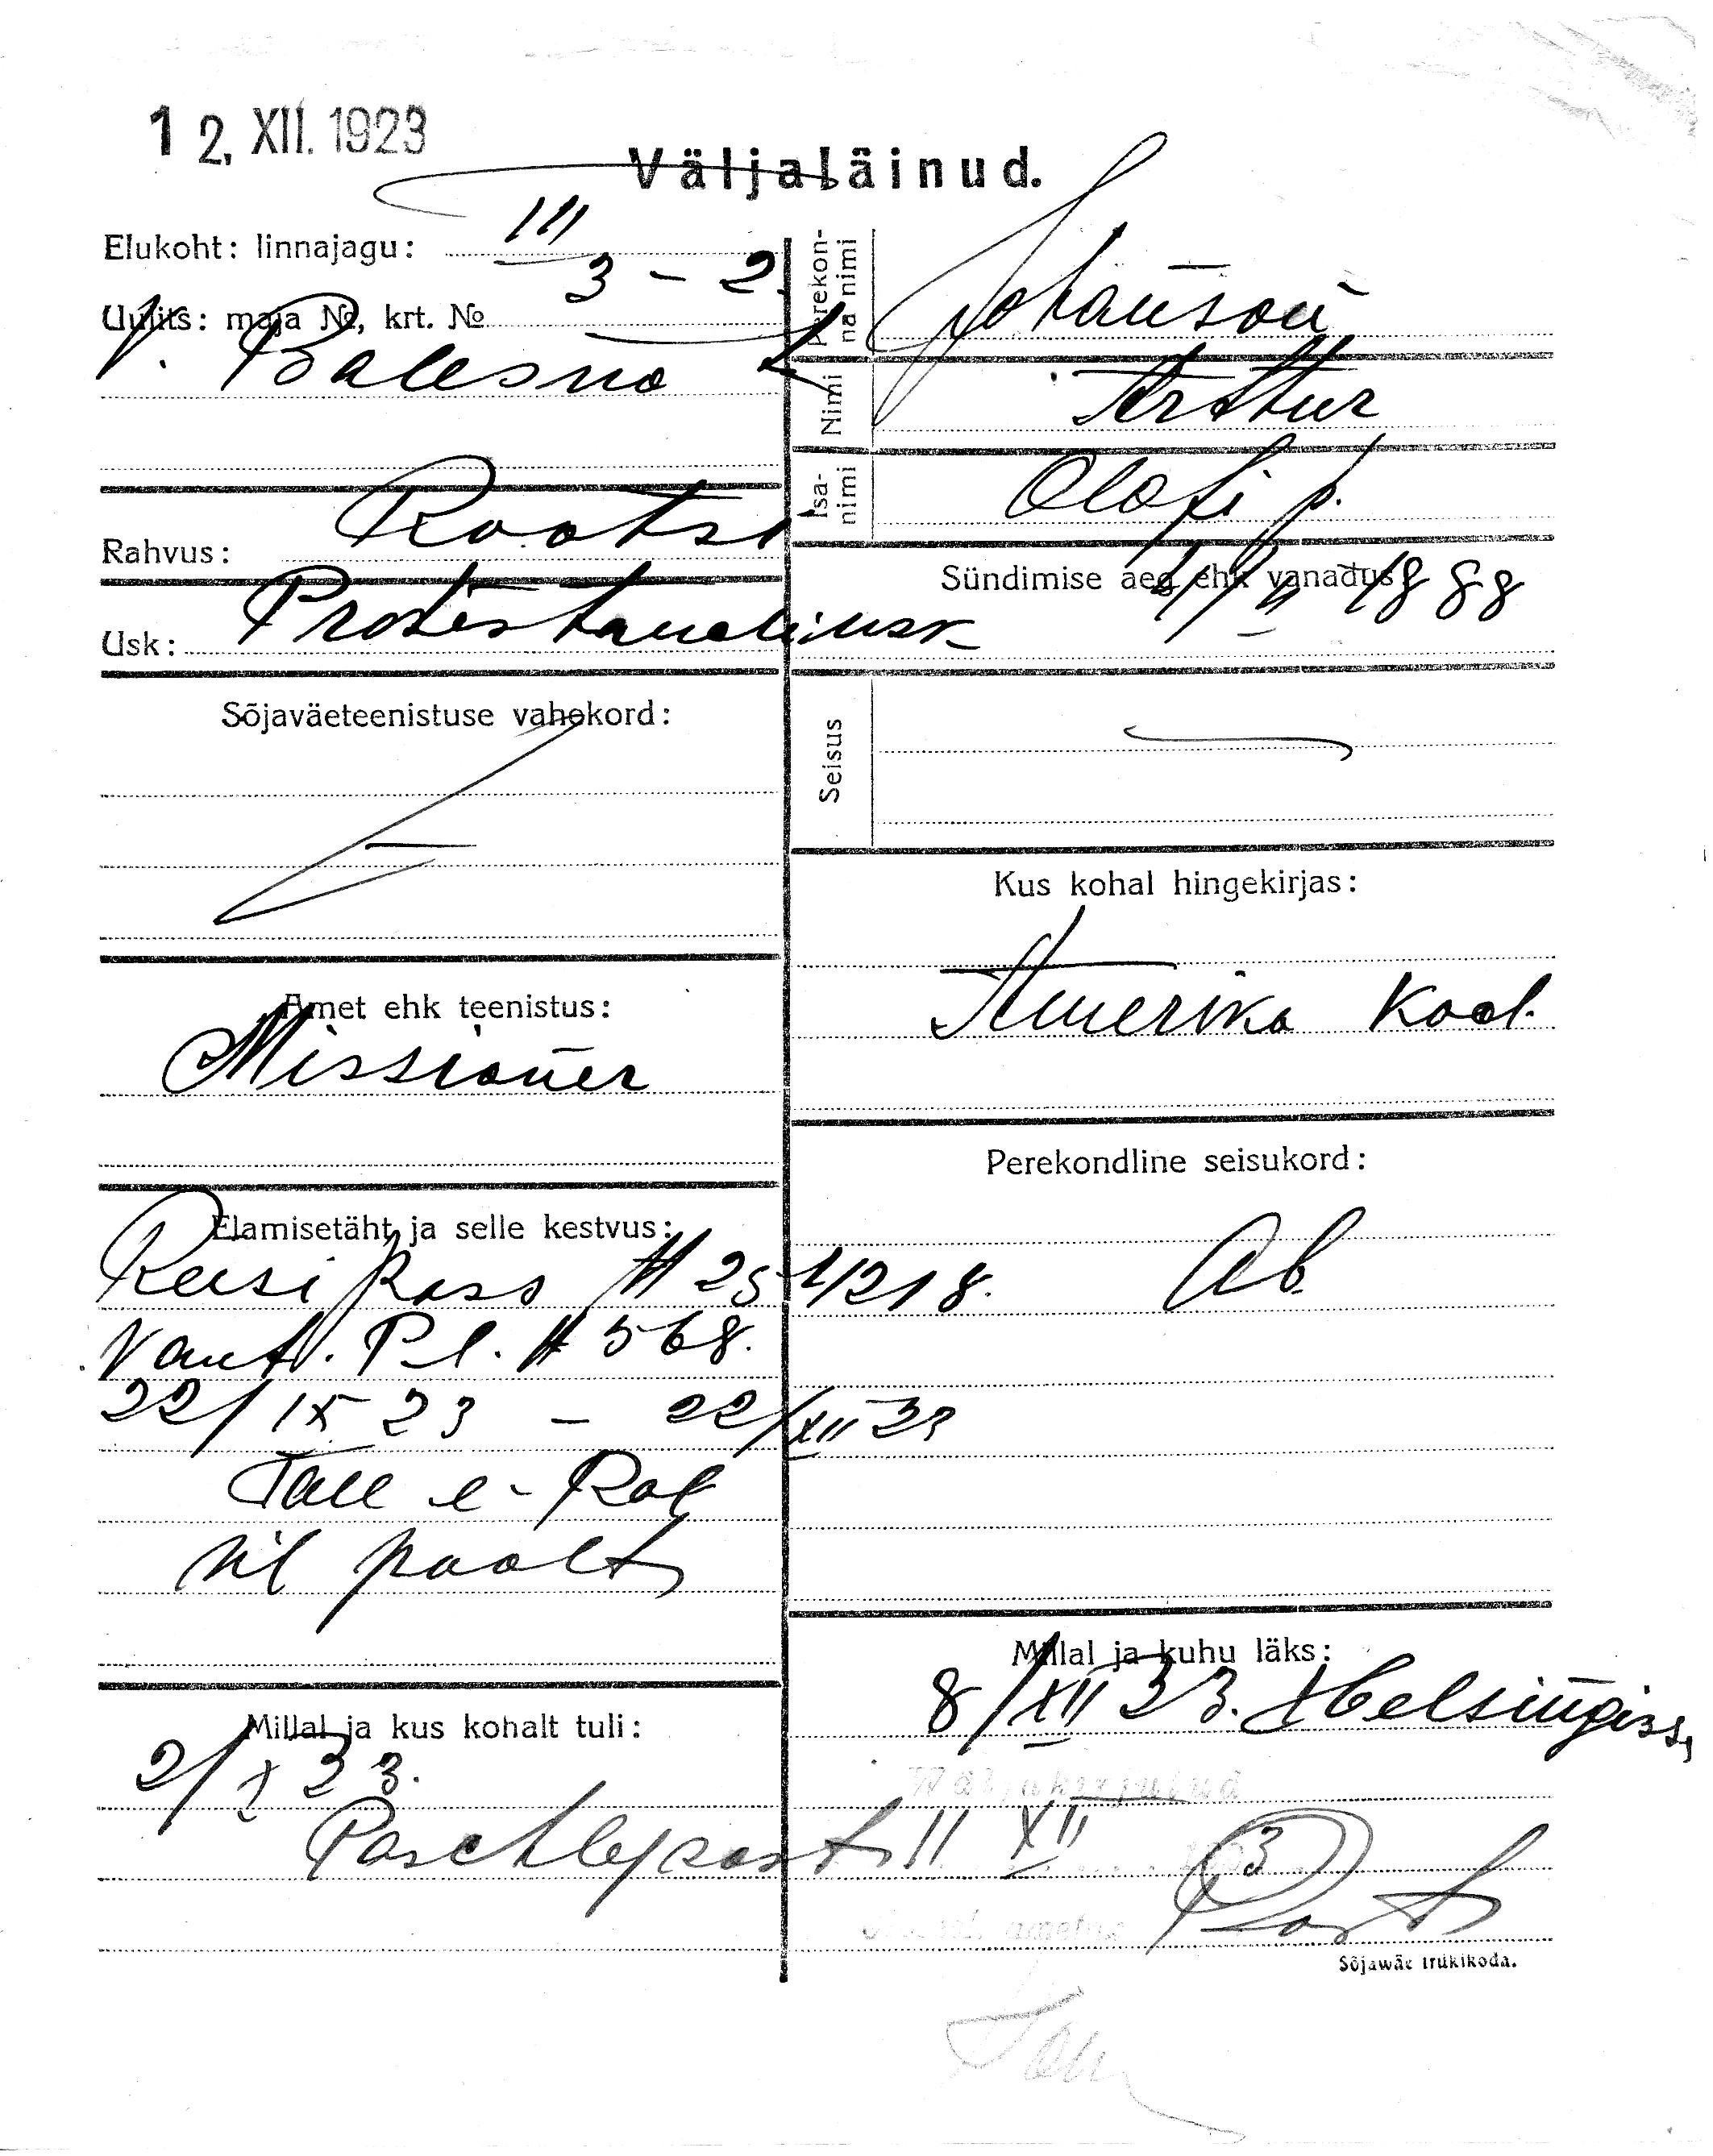 12. XII. 1923
Väljaläinud.
Elukoht: linnajagu: III
Uulits: maja №, krt. № 3 – 2
V. Balesna
Rahvus: Rootsi
Usk: Protestandiusk
Sõjaväeteenistuse vahekord:
Amet ehk teenistus:
Missionër
Elamisetäht ja selle kestvus:
Reisipass № 251218.
Pl. № 568.
22/IX 23 – 22/XII 23
Tall
poolt
Millal ja kus kohalt tuli:
2/X 23.
Perekonna nimi
Johanson
Nimi
Arthur
Isanimi
Olofi p.
Sündimise aeg ehk vanadus
II 1888
Seisus
Kus kohal hingekirjas:
Amerika kod.
Perekondline seisukord:
Ab.
Millal ja kuhu läks:
8/XII 23. Helsingiss,
11 XII 3
Sõjawäe trükikoda.